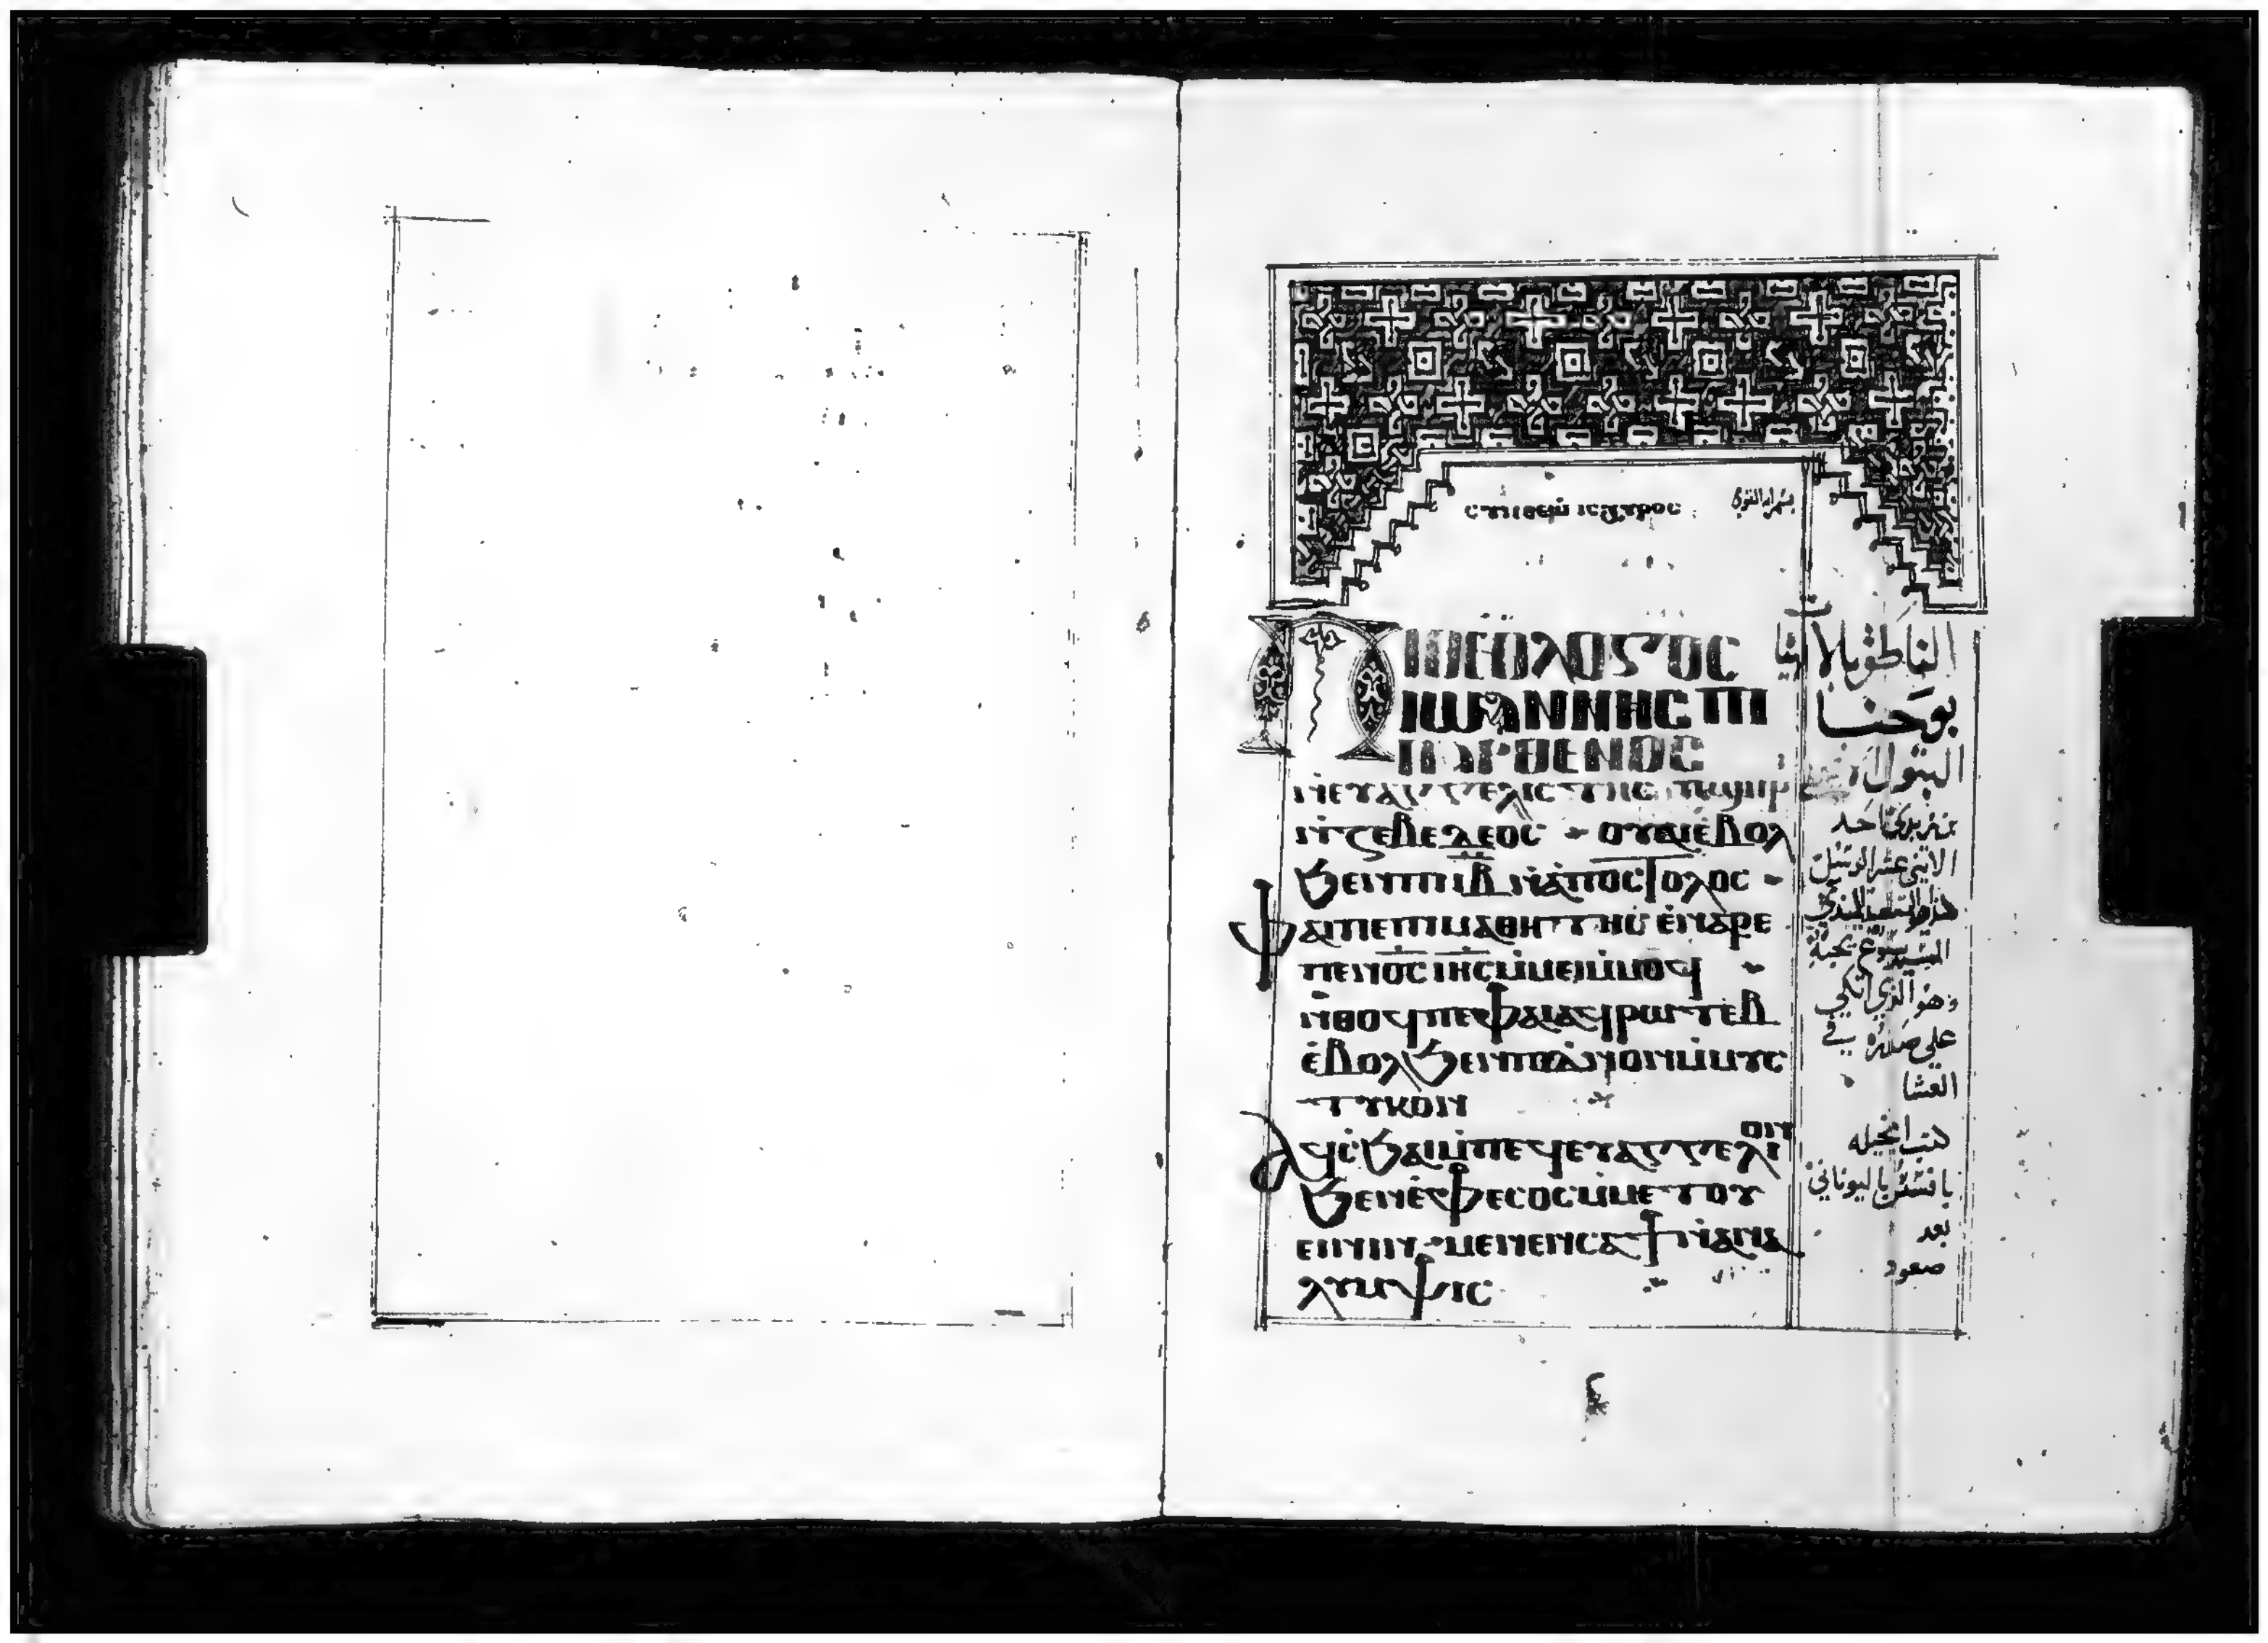 ⲥⲩⲛⲑⲉⲱ ⲓⲥⲭⲩⲣⲟⲥ
ⲠⲓⲐⲉⲟⲗⲟⲅⲟⲥ
ⲓⲱⲁⲛⲛⲏⲥ ⲡⲓ
ⲡⲁⲣⲑⲉⲛⲟⲥ
ⲛⲉⲩⲁⲅⲅⲉⲗⲓⲥⲧⲏⲥ ⲡϣⲏⲣⲓ
ⲛ̀ⲍⲉⲃⲉⲇⲉⲟⲥ ⲟⲩⲁⲓ ⲉⲃⲟⲗ
ϧⲉⲛ ⲡⲓⲓ̅ⲃ̅ ⲛ̀ⲁⲡⲟⲥⲧⲟⲗⲟⲥ
ⲫⲁⲓ ⲡⲉ ⲡⲓⲙⲁⲑⲏⲧⲏⲥ ⲉ̀ⲛⲁⲣⲉ
ⲡⲉⲛⲟ̅ⲥ̅ ⲓⲏ̅ⲥ̅ ⲙ̀ⲙⲉⲓ ⲙ̀ⲙⲟϥ
ⲛ̀ⲑⲟϥ ⲡⲉ ⲫⲁⲓ ⲁϥⲣⲱⲧⲉⲃ
ⲉ̀ⲃⲟⲗ ϧⲉⲛ ⲡⲓⲇⲓⲡⲛⲟⲛ ⲙ̀ⲙⲩⲥ
ⲧⲩⲕⲟⲛ
ⲁϥⲥ̀ϧⲁⲓ ⲙ̀ⲡⲉϥⲉⲩⲁⲅⲅⲉⲗⲓⲟⲛ
ϧⲉⲛ ⲉ̀ⲫⲉⲥⲟⲥ ⲙ̀ⲙⲉⲧⲟⲩ
ⲉⲓⲛⲓⲛ ⲙⲉⲛⲉⲛⲥⲁ ϯⲁⲛⲁ
ⲗⲩⲙⲯⲓⲥ
الناطق بالالاهيات
يوحنا
البتول
بن زبدي احد
الاثني عشر الرسل
هذا التلميذ الذي
السيد يسوع يحبه
وهو الذي اتكي
على صدره في
العشا
كتب انجيله
بافسس باليوناني
بعد
صعود